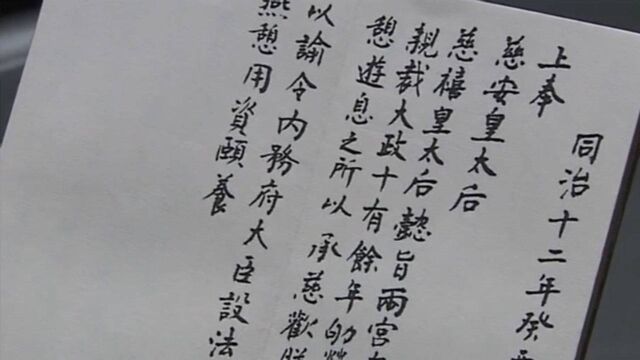 同治十二年癸
上奉
慈安皇太后
慈禧皇太后懿旨兩宮
親裁大政十有餘年
憩遊息之所以承慈歡
以諭令内務府大臣設法
燕憩用資頤養